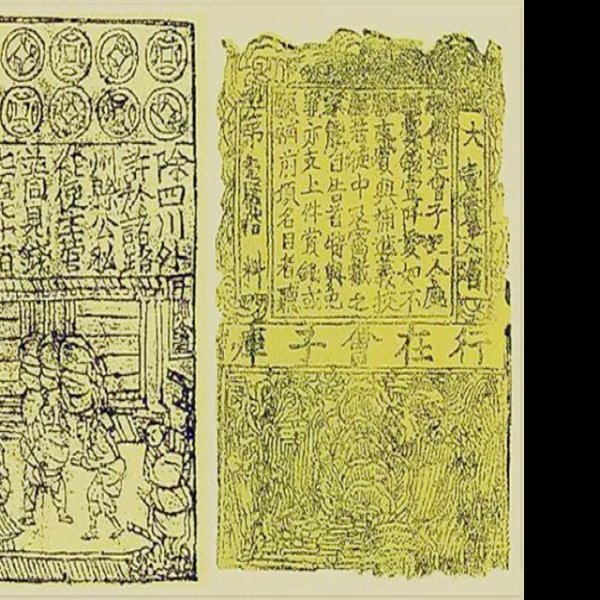 除四川外
許於諸路
州縣公私
從便主管
並同見錢
七百七十陌
大壹貫文省
敕偽造會子犯人處
斬賞錢壹阡貫如不
願支賞與補進義校
尉若徒中及窩藏之
家能自告首特與免
罪亦支上件賞錢或
願補前項名目者聽
第壹百拾料
行在會子庫